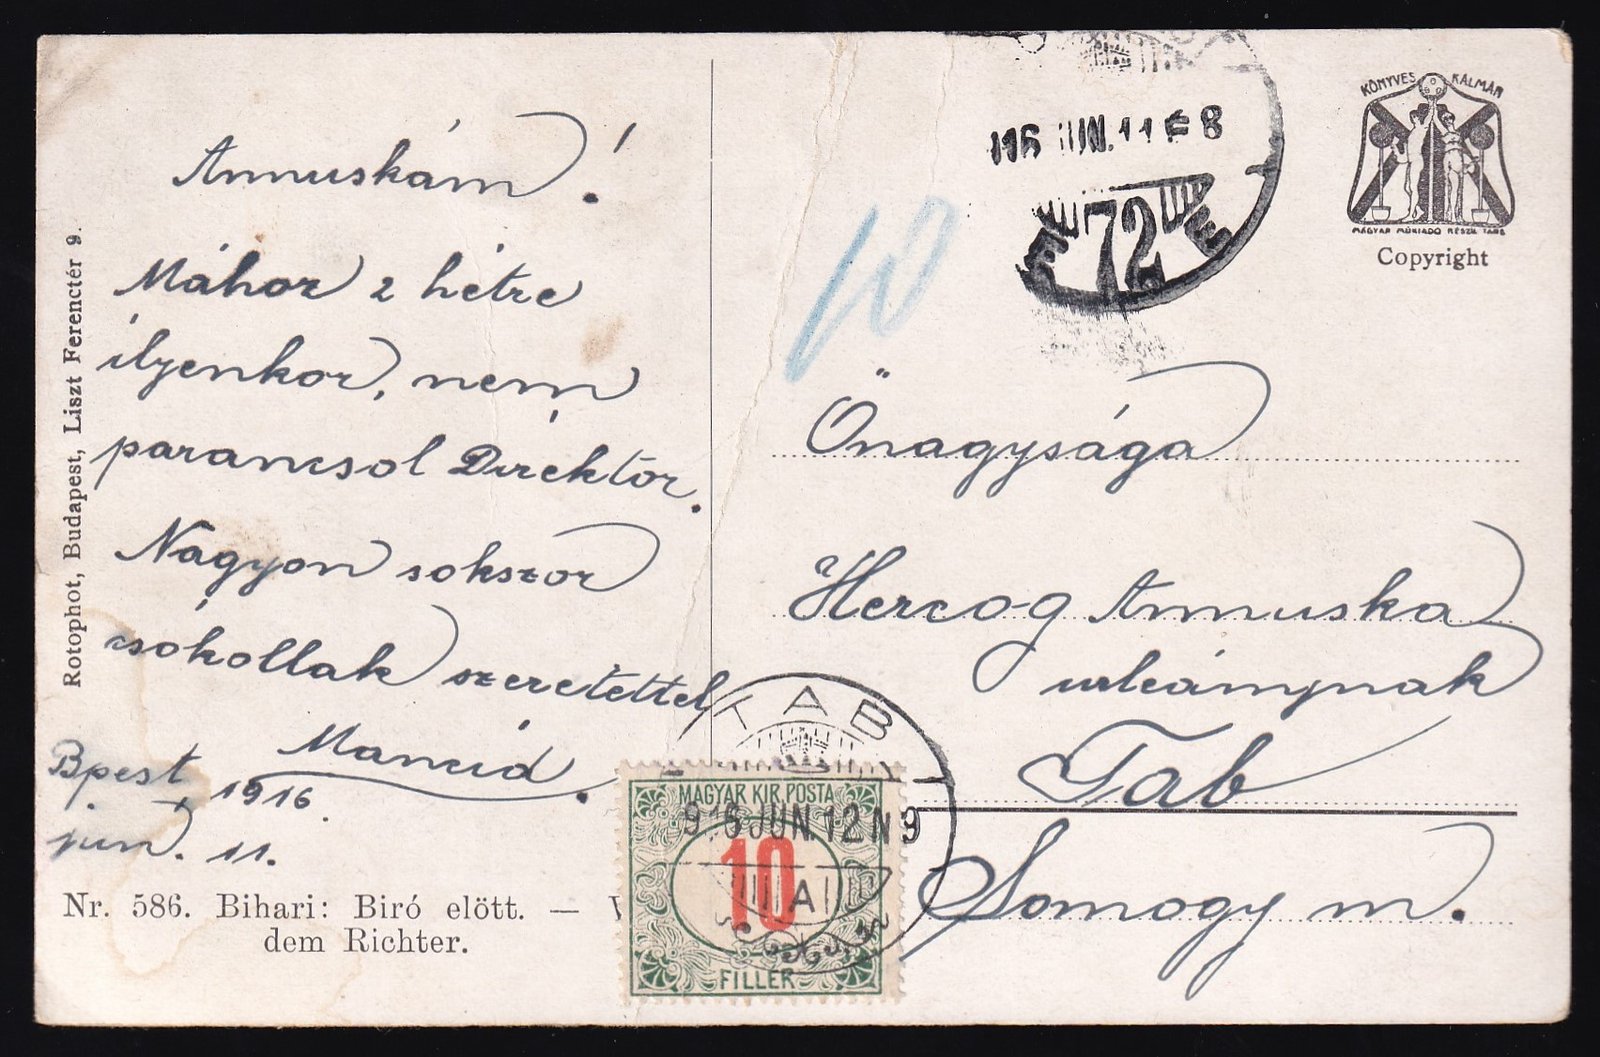 Annuskám!
Mához 2 hétre
ilyenkor, nem
parancsol Direktor.
Nagyon sokszor
csókollak szeretettel
Mancid.
Bpest, 1916
jun. 11.
Nr. 586. Bihari: Biró elött. —
dem Richter.
Rotophot, Budapest, Liszt Ferenctér 9.
916 JUN. 11 8
72
10
KÖNYVES KÁLMÁN
MAGYAR MŰKIADÓ RÉSZV. TÁRS
Copyright
Önagysága
Herczog Annuska
urleánynak
Tab
Somogy m.
TAB
916 JUN. 12 N 9
A
MAGYAR KIR. POSTA
10
FILLÉR